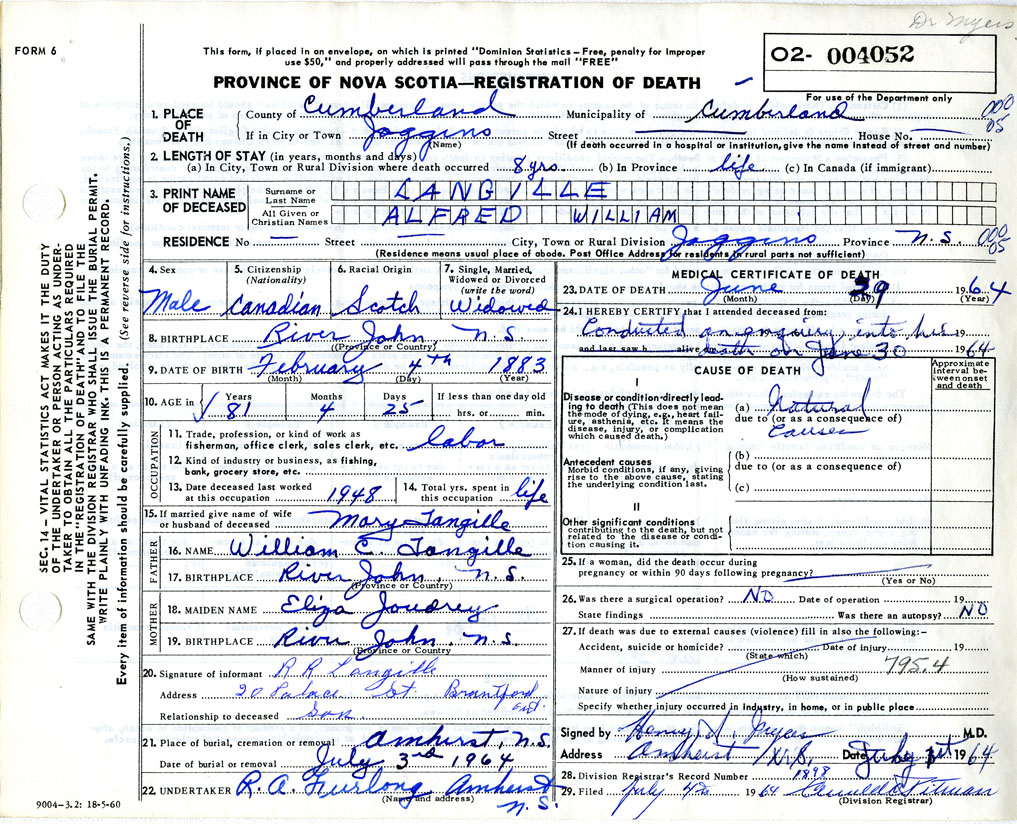 Dr Myers
FORM 6
This form, if placed in an envelope, on which is printed "Dominion Statistics – Free, penalty for improper
use $50," and properly addressed will pass through the mail "FREE"
PROVINCE OF NOVA SCOTIA—REGISTRATION OF DEATH
O2- 004052
For use of the Department only
1. PLACE OF DEATH County of Cumberland Municipality of Cumberland 000
If in City or Town Joggins Street House No. 05
(Name) (If death occurred in a hospital or institution, give the name instead of street and number)
2. LENGTH OF STAY (in years, months and days)
(a) In City, Town or Rural Division where death occurred 8 yrs (b) In Province life (c) In Canada (if immigrant)
3. PRINT NAME OF DECEASED Surname or Last Name LANGILLE
All Given or Christian Names ALFRED WILLIAM
RESIDENCE No Street City, Town or Rural Division Joggins Province N.S. 000 05
(Residence means usual place of abode. Post Office Address for residents in rural parts not sufficient)
4. Sex 5. Citizenship (Nationality) 6. Racial Origin 7. Single, Married, Widowed or Divorced (write the word)
Male Canadian Scotch Widowed
8. BIRTHPLACE River John, N.S.
(Province or Country)
9. DATE OF BIRTH February 4th 1883
(Month) (Day) (Year)
10. AGE in Years Months Days If less than one day old
81 4 25 hrs. or min.
OCCUPATION
11. Trade, profession, or kind of work as
fisherman, office clerk, sales clerk, etc. labor
12. Kind of industry or business, as fishing,
bank, grocery store, etc.
13. Date deceased last worked at this occupation 1948 14. Total yrs. spent in this occupation life
15. If married give name of wife
or husband of deceased Mary Langille
FATHER
16. NAME William C. Langille
17. BIRTHPLACE River John, N.S.
(Province or Country)
MOTHER
18. MAIDEN NAME Eliza Joudrey
19. BIRTHPLACE River John N.S
(Province or Country)
20. Signature of informant R R Langille
Address 20 Palace St Brantford Ont.
Relationship to deceased Son
21. Place of burial, cremation or removal Amherst, N.S.
Date of burial or removal July 3rd 1964
22. UNDERTAKER R. A. Furlong Amherst
(Name and address) N.S.
MEDICAL CERTIFICATE OF DEATH
23. DATE OF DEATH June 29 1964
(Month) (Day) (Year)
24. I HEREBY CERTIFY that I attended deceased from:
Conducted an enquiry into his 19
and last saw h alive death on June 30 1964
CAUSE OF DEATH
Approximate interval between onset and death
I
Disease or condition directly leading to death (This does not mean
the mode of dying, e.g., heart failure, asthenia, etc. It means the
disease, injury, or complication
which caused death.)
(a) Natural
due to (or as a consequence of)
Causes
Antecedent causes
Morbid conditions, if any, giving
rise to the above cause, stating
the underlying condition last.
(b)
due to (or as a consequence of)
(c)
II
Other significant conditions
contributing to the death, but not
related to the disease or condition causing it.
25. If a woman, did the death occur during
pregnancy or within 90 days following pregnancy?
(Yes or No)
26. Was there a surgical operation? NO Date of operation 19
State findings Was there an autopsy? NO
27. If death was due to external causes (violence) fill in also the following:–
Accident, suicide or homicide? Date of injury 19
(State which)
Manner of injury 795.4
(How sustained)
Nature of injury
Specify whether injury occurred in industry, in home, or in public place
Signed by Henry Myers M.D.
Address Amherst N.S. Date July 1st 1964
28. Division Registrar's Record Number 1898
29. Filed July 4 1964 Pitman
(Division Registrar)
SEC. 14 – VITAL STATISTICS ACT MAKES IT THE DUTY
OF THE UNDERTAKER OR PERSON ACTING AS UNDERTAKER TO OBTAIN ALL THE PARTICULARS REQUIRED
IN THE "REGISTRATION OF DEATH" AND TO FILE THE
SAME WITH THE DIVISION REGISTRAR WHO SHALL ISSUE THE BURIAL PERMIT.
WRITE PLAINLY WITH UNFADING INK. THIS IS A PERMANENT RECORD.
Every item of information should be carefully supplied. (See reverse side for instructions.)
9004–3.2: 18-5-60